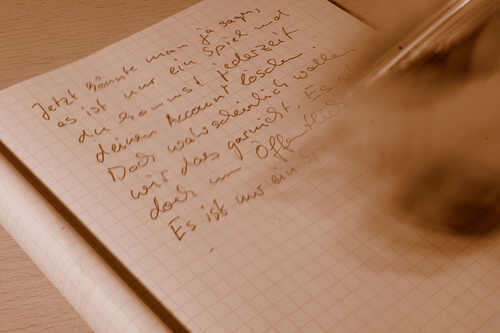 Jetzt könnte man ja sagen,
es ist nur ein Spiel und
du kannst jederzeit
deinen Account löschen
Doch wahrscheinlich wollen
wir das garnicht. Es
doch im Öffentlich
Es ist nur ein